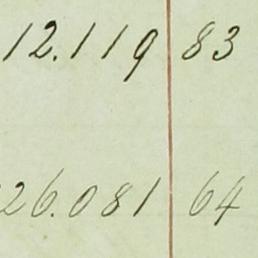 12.119 83
26.081 64